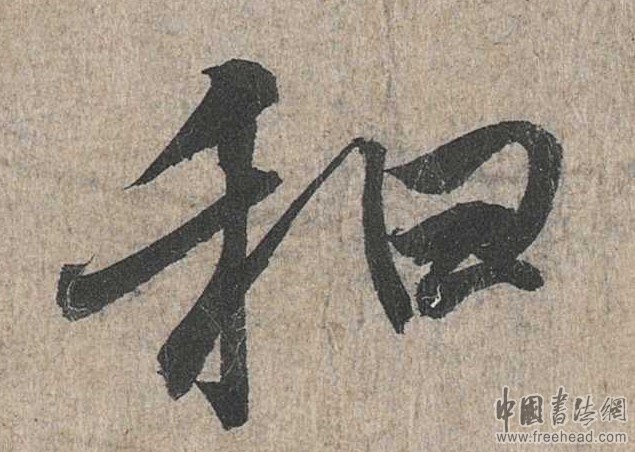 和
中國書法網
www.freehead.com